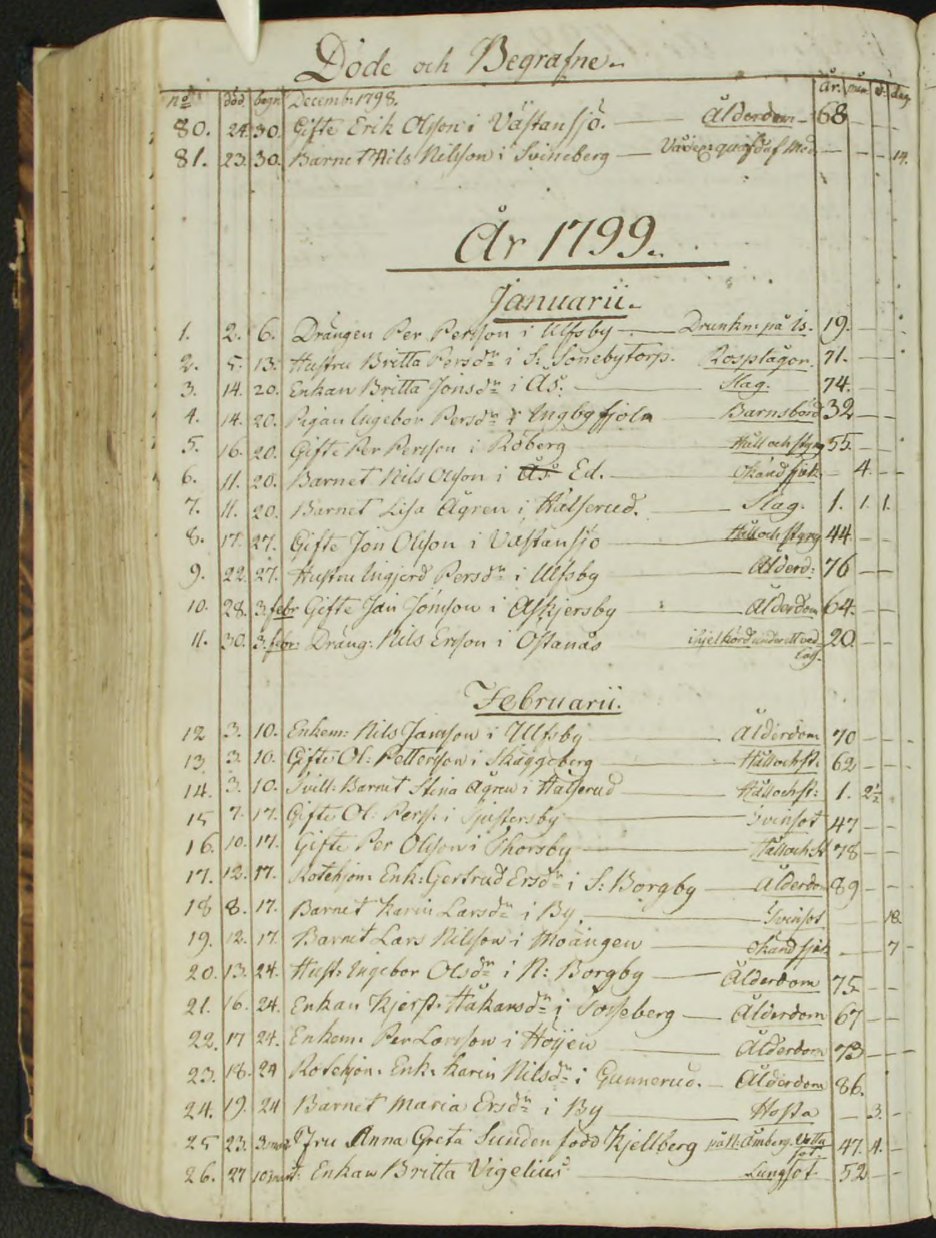 Döde och Begrafne
No död. begr. Decemb: 1798. år. mån. v. dag.
80. 24. 30. Gifte Erik Olsson i Västansjö. — Ålderdom — 68 — —
81. 23. 30. Barnet Nils Nilsson i Svineberg — af Mod. — — — 14.
År 1799.
Januarii.
1. 2. 6. Drängen Per Persson i Ulfsby — Drunkn: på is. 19. — —
2. 5. 13. Hustru Britta Persdr i S: Sönebytorp. Rosslagor. 71. — —
3. 14. 20. Enkan Britta Jonsdr i Ås. — Slag. 74. — —
4. 14. 20. Pigan Ingebor Persdr i Ingbyfjoln — Barnsbörd 32 — —
5. 16. 20. Gifte Per Persson i Röberg — Håll och styng 55. — —
6. 11. 20. Barnet Nils Olsson i Ås Ed. — okänd sjuk. — 4. — —
7. 11. 20. Barnet Lisa Ågren i Hälserud. — Slag. 1. 1. 1.
8. 17. 27. Gifte Jon Olsson i Västansjö — Håll och styng 44. — —
9. 22. 27. Hustru Ingjerd Persdr i Ulfsby — Ålderd: 76 — —
10. 28. 3. febr Gifte Jan Jonsson i Askjersby — Ålderdom 64. — —
11. 30. 3. febr: Dräng: Nils Ersson i Östanås ihjelkörd under ett ved- 20. — —
lass.
Februarii.
12 3. 10. Enkem: Nils Jansson i Ulfsby — Ålderdom 70 — —
13. 3. 10. Gifte Ol: Pettersson i Skäggeberg — Håll och st. 62 — —
14. 3. 10. Barnet Stina Ågren i Hälserud — Håll och st: 1. 2½
15 7. 17. Gifte Ol: Perss: i — 47 — —
16. 10. 17. Gifte Per Olsson i Thorsby — Håll och st 78 — —
17. 12. 17. Rotehjon: Enk: Gertrud Ersdr i S: Borgby — Ålderdo 89 — —
18 8. 17. Barnet Karin Larsdr i By. — — — 18.
19. 12. 17. Barnet Lars Nilsson i Moängen — okänd sjuk — — 7 —
20. 13. 24. Hust: Ingebor Olsdr i N: Borgby — Ålderdom 75 — —
21. 16. 24. Enkan Kjerst: Håkansdr i Torseberg — Ålderdom 67 — —
22. 17 24. Enkem: Per Larsson i Höijen — Ålderdom 73 — —
23. 18. 24 Rotehjon: Enk: Karin Nilsdr i Gunnerud. — Ålderdom 86.
24. 19. 24 Barnet Maria Ersdr i By — Hosta — 3. —
25 23. 3 mart Fru Anna Greta Sundén född Kjellberg på N: Åmberg. 47. 4. —
sot.
26. 27 10 mart: Enkan Britta Vigelius — Lungsot 52 — —